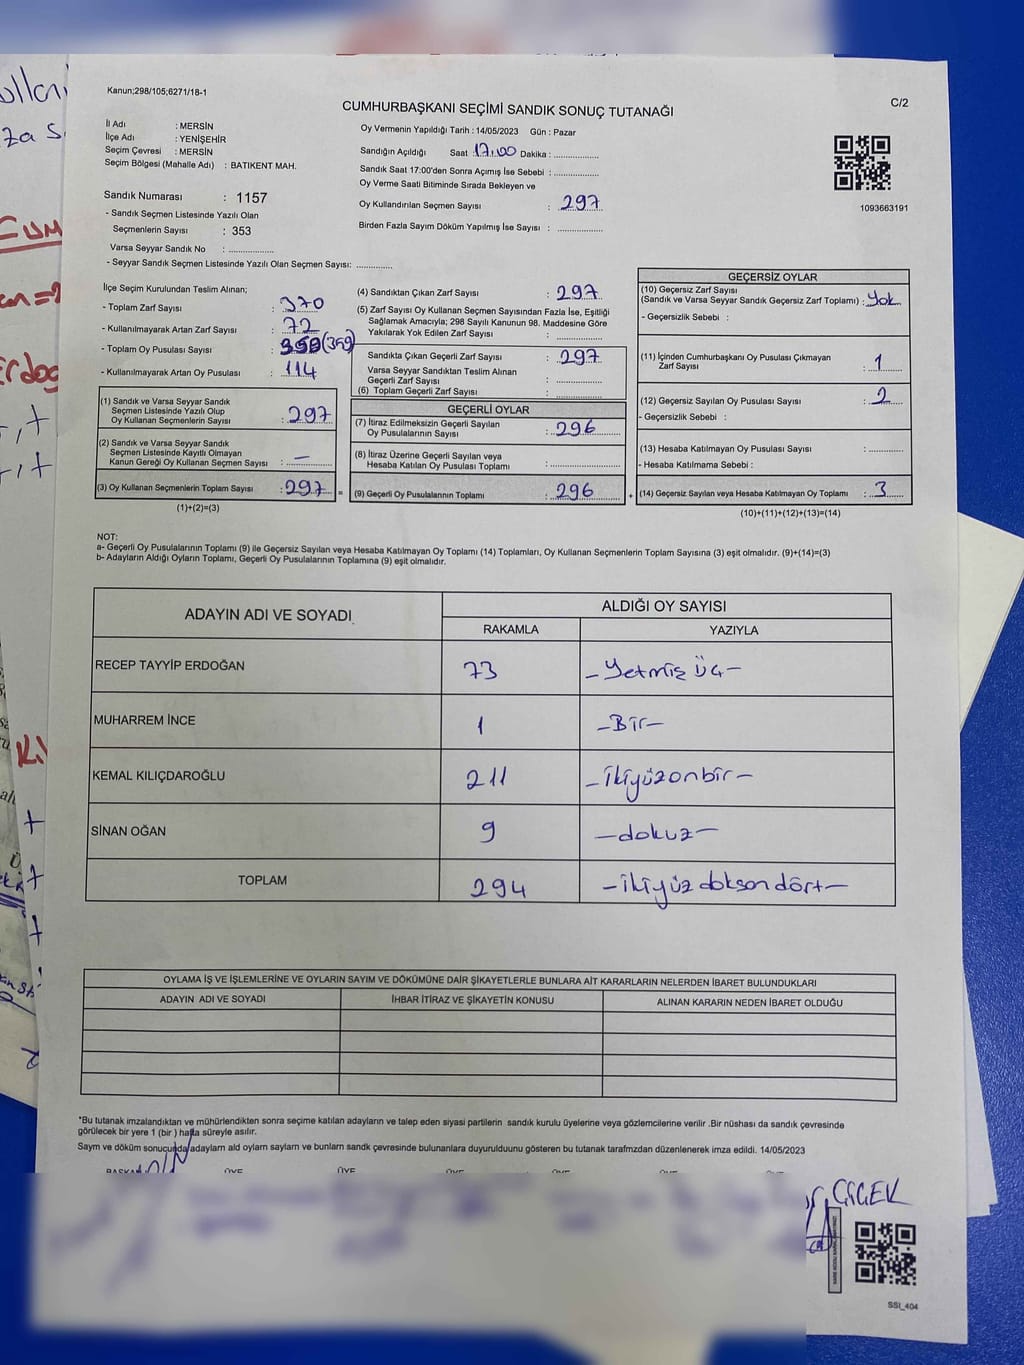 Kanun;298/105;6271/18-1
C/2
CUMHURBAŞKANI SEÇİMİ SANDIK SONUÇ TUTANAĞI
İl Adı : MERSİN
İlçe Adı : YENİŞEHİR
Seçim Çevresi : MERSİN
Seçim Bölgesi (Mahalle Adı) : BATIKENT MAH.
Sandık Numarası : 1157
- Sandık Seçmen Listesinde Yazılı Olan
Seçmenlerin Sayısı : 353
Varsa Seyyar Sandık No : ................
- Seyyar Sandık Seçmen Listesinde Yazılı Olan Seçmen Sayısı: .............
Oy Vermenin Yapıldığı Tarih : 14/05/2023 Gün : Pazar
Sandığın Açıldığı Saat 17.00 Dakika : ................
Sandık Saat 17:00'den Sonra Açımış İse Sebebi : ................
Oy Verme Saati Bitiminde Sırada Bekleyen ve
Oy Kullandırılan Seçmen Sayısı : 297
Birden Fazla Sayım Döküm Yapılmış İse Sayısı : ................
1093663191
İlçe Seçim Kurulundan Teslim Alınan;
- Toplam Zarf Sayısı : 370
- Kullanılmayarak Artan Zarf Sayısı : 72
- Toplam Oy Pusulası Sayısı : (359)
- Kullanılmayarak Artan Oy Pusulası : 114
(1) Sandık ve Varsa Seyyar Sandık
Seçmen Listesinde Yazılı Olup
Oy Kullanan Seçmenlerin Sayısı : 297
(2) Sandık ve Varsa Seyyar Sandık
Seçmen Listesinde Kayıtlı Olmayan
Kanun Gereği Oy Kullanan Seçmen Sayısı : –
(3) Oy Kullanan Seçmenlerin Toplam Sayısı : 297 =
(1)+(2)=(3)
(4) Sandıktan Çıkan Zarf Sayısı : 297
(5) Zarf Sayısı Oy Kullanan Seçmen Sayısından Fazla İse, Eşitliği
Sağlamak Amacıyla; 298 Sayılı Kanunun 98. Maddesine Göre
Yakılarak Yok Edilen Zarf Sayısı : ................
Sandıkta Çıkan Geçerli Zarf Sayısı : 297
Varsa Seyyar Sandıktan Teslim Alınan
Geçerli Zarf Sayısı : ................
(6) Toplam Geçerli Zarf Sayısı : ................
GEÇERLİ OYLAR
(7) İtiraz Edilmeksizin Geçerli Sayılan
Oy Pusulalarının Sayısı : 296
(8) İtiraz Üzerine Geçerli Sayılan veya
Hesaba Katılan Oy Pusulası Toplamı : ................
(9) Geçerli Oy Pusulalarının Toplamı : 296 +
GEÇERSİZ OYLAR
(10) Geçersiz Zarf Sayısı
(Sandık ve Varsa Seyyar Sandık Geçersiz Zarf Toplamı) : Yok
- Geçersizlik Sebebi :
(11) İçinden Cumhurbaşkanı Oy Pusulası Çıkmayan
Zarf Sayısı : 1
(12) Geçersiz Sayılan Oy Pusulası Sayısı : 2
- Geçersizlik Sebebi :
(13) Hesaba Katılmayan Oy Pusulası Sayısı : ................
- Hesaba Katılmama Sebebi :
(14) Geçersiz Sayılan veya Hesaba Katılmayan Oy Toplamı : 3
(10)+(11)+(12)+(13)=(14)
NOT:
a- Geçerli Oy Pusulalarının Toplamı (9) ile Geçersiz Sayılan veya Hesaba Katılmayan Oy Toplamı (14) Toplamları, Oy Kullanan Seçmenlerin Toplam Sayısına (3) eşit olmalıdır. (9)+(14)=(3)
b- Adayların Aldığı Oyların Toplamı, Geçerli Oy Pusulalarının Toplamına (9) eşit olmalıdır.
ADAYIN ADI VE SOYADI
ALDIĞI OY SAYISI
RAKAMLA YAZIYLA
RECEP TAYYİP ERDOĞAN 73 –Yetmiş Üç–
MUHARREM İNCE 1 –Bir–
KEMAL KILIÇDAROĞLU 211 –ikiyüzonbir–
SİNAN OĞAN 9 –dokuz–
TOPLAM 294 –ikiyüz doksan dört–
OYLAMA İŞ VE İŞLEMLERİNE VE OYLARIN SAYIM VE DÖKÜMÜNE DAİR ŞİKAYETLERLE BUNLARA AİT KARARLARIN NELERDEN İBARET BULUNDUKLARI
ADAYIN ADI VE SOYADI İHBAR İTİRAZ VE ŞİKAYETİN KONUSU ALINAN KARARIN NEDEN İBARET OLDUĞU
*Bu tutanak imzalandıktan ve mühürlendikten sonra seçime katılan adayların ve talep eden siyasi partilerin sandık kurulu üyelerine veya gözlemcilerine verilir .Bir nüshası da sandık çevresinde
görülecek bir yere 1 (bir ) hafta süreyle asılır.
Sayım ve döküm sonucunda adayların ald oyların sayların ve bunların sandk çevresinde bulunanlara duyurulduunu gösteren bu tutanak tarafmzdan düzenlenerek imza edildi. 14/05/2023
ÇİÇEK
SSI_404